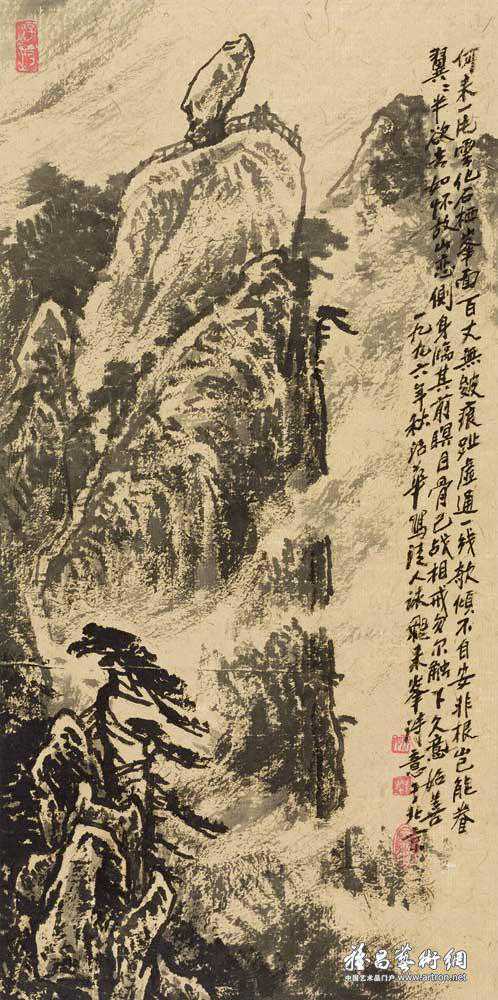 何来一片云化石栖峰面百丈無皴痕趾虚通一线欹傾不自安非根岂能眷
翼翼半欲去如怀故山恋側身臨其前瞑目骨已战相戒勿尔触下久甚始善
一九九六年秋 華写 人詠飛来峰诗意于北京
雅昌藝術網
中国艺术品门户 www.artron.net